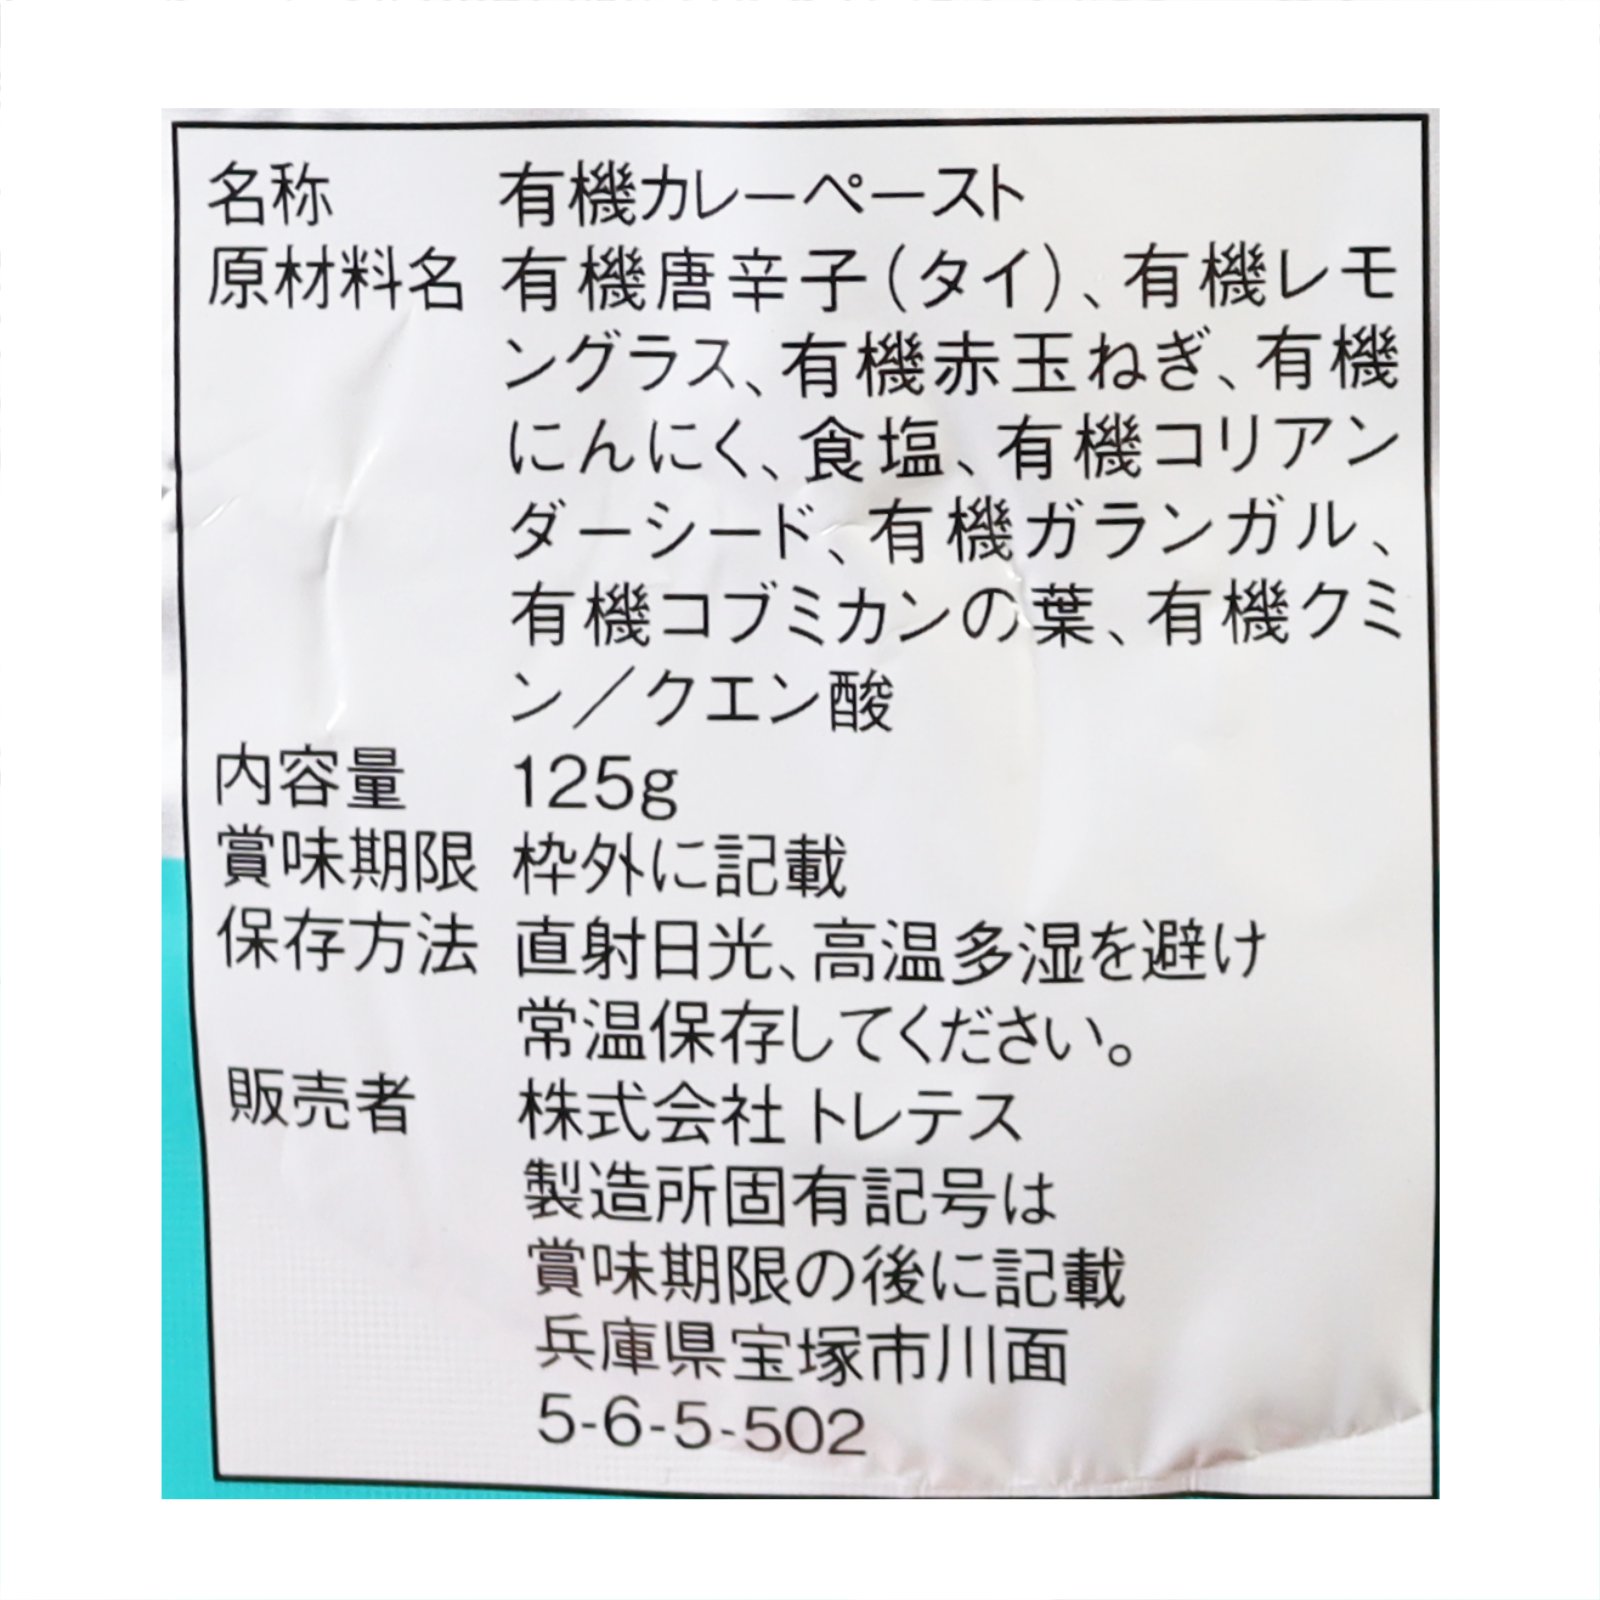 名称 有機カレーペースト
原材料名 有機唐辛子(タイ)、有機レモ
ングラス、有機赤玉ねぎ、有機
にんにく、食塩、有機コリアン
ダーシード、有機ガランガル、
有機コブミカンの葉、有機クミ
ン／クエン酸
内容量 125g
賞味期限 枠外に記載
保存方法 直射日光、高温多湿を避け
常温保存してください。
販売者 株式会社トレテス
製造所固有記号は
賞味期限の後に記載
兵庫県宝塚市川面
5-6-5-502